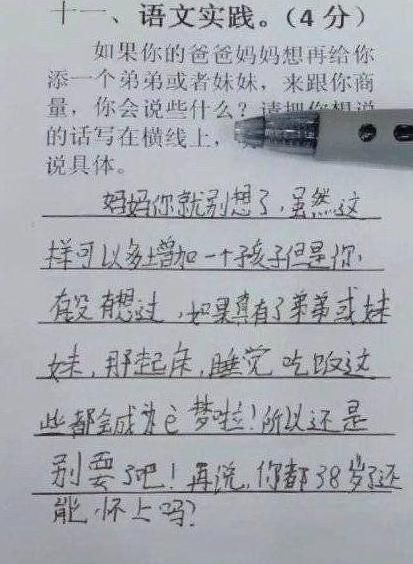 十一、语文实践。(4分)
如果你的爸爸妈妈想再给你
添一个弟弟或者妹妹，来跟你商
量，你会说些什么？请把你想说
的话写在横线上，
说具体。
妈妈你就别想了,虽然这
样可以多增加一个孩子但是你,
有没有想过,如果真有了弟弟或妹
妹,那起床,睡觉吃饭这
些都会成为亡梦啦!所以还是
别要了吧!再说,你都38岁了还
能怀上吗?